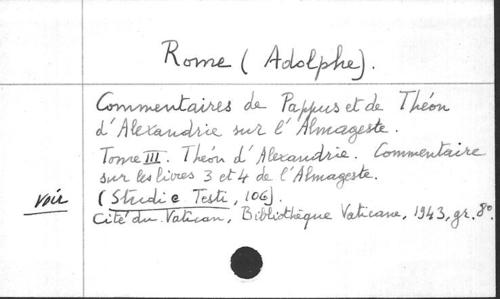 Rome (Adolphe).
Commentaires de Pappus et de Théon
d'Alexandrie sur l'Almageste.
Tome III. Théon d'Alexandrie. Commentaire
sur les livres 3 et 4 de l'Almageste.
voir (Studi e Testi, 106).
Cité du Vatican, Bibliothèque Vaticane, 1943, gr. 8º.